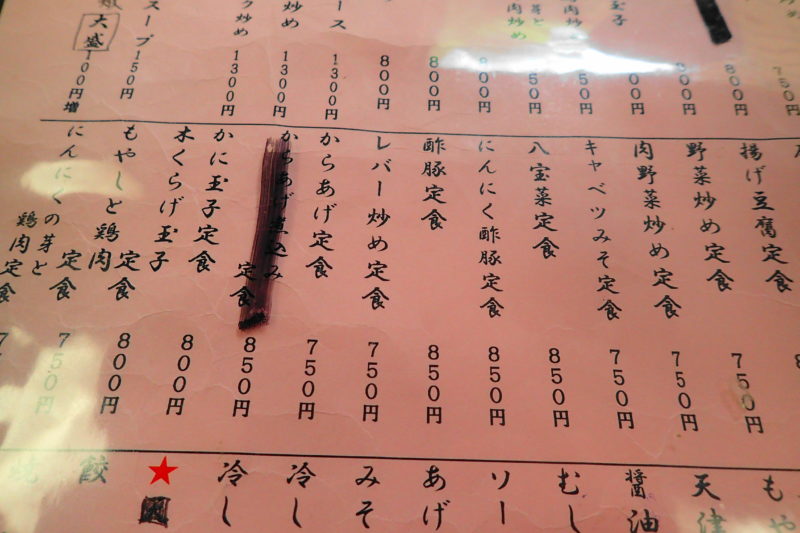 玉子
肉炒め
芽と
肉炒め
ース
炒め
ク炒め
スープ
大盛
750
800円
800円
800円
800円
1300円
1300円
1300円
150円
100円増
揚げ豆腐定食
750円
野菜炒め定食
750円
肉野菜炒め定食
750円
キャベツみそ定食
750円
八宝菜定食
850円
にんにく酢豚定食
850円
酢豚定食
850円
レバー炒め定食
750円
からあげ定食
750円
からあげ煮込み
定食
850円
かに玉子定食
800円
木くらげ玉子
定食
800円
もやしと鶏肉
定食
750円
にんにくの芽と
鶏肉定食
もや
天津
醤油
むし
ソー
あげ
みそ
冷し
冷し
★
餃
焼